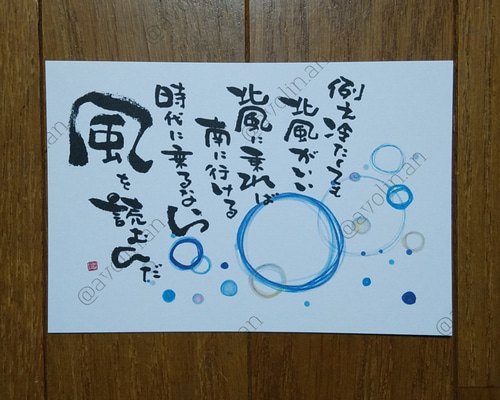 例え冷たくても
北風がいい
北風に乗れば
南に行ける
時代に乗るない
風を読むんだ
@avolin.an
@avolin.an
@avolin.an
@avolin.an
@avolin.an